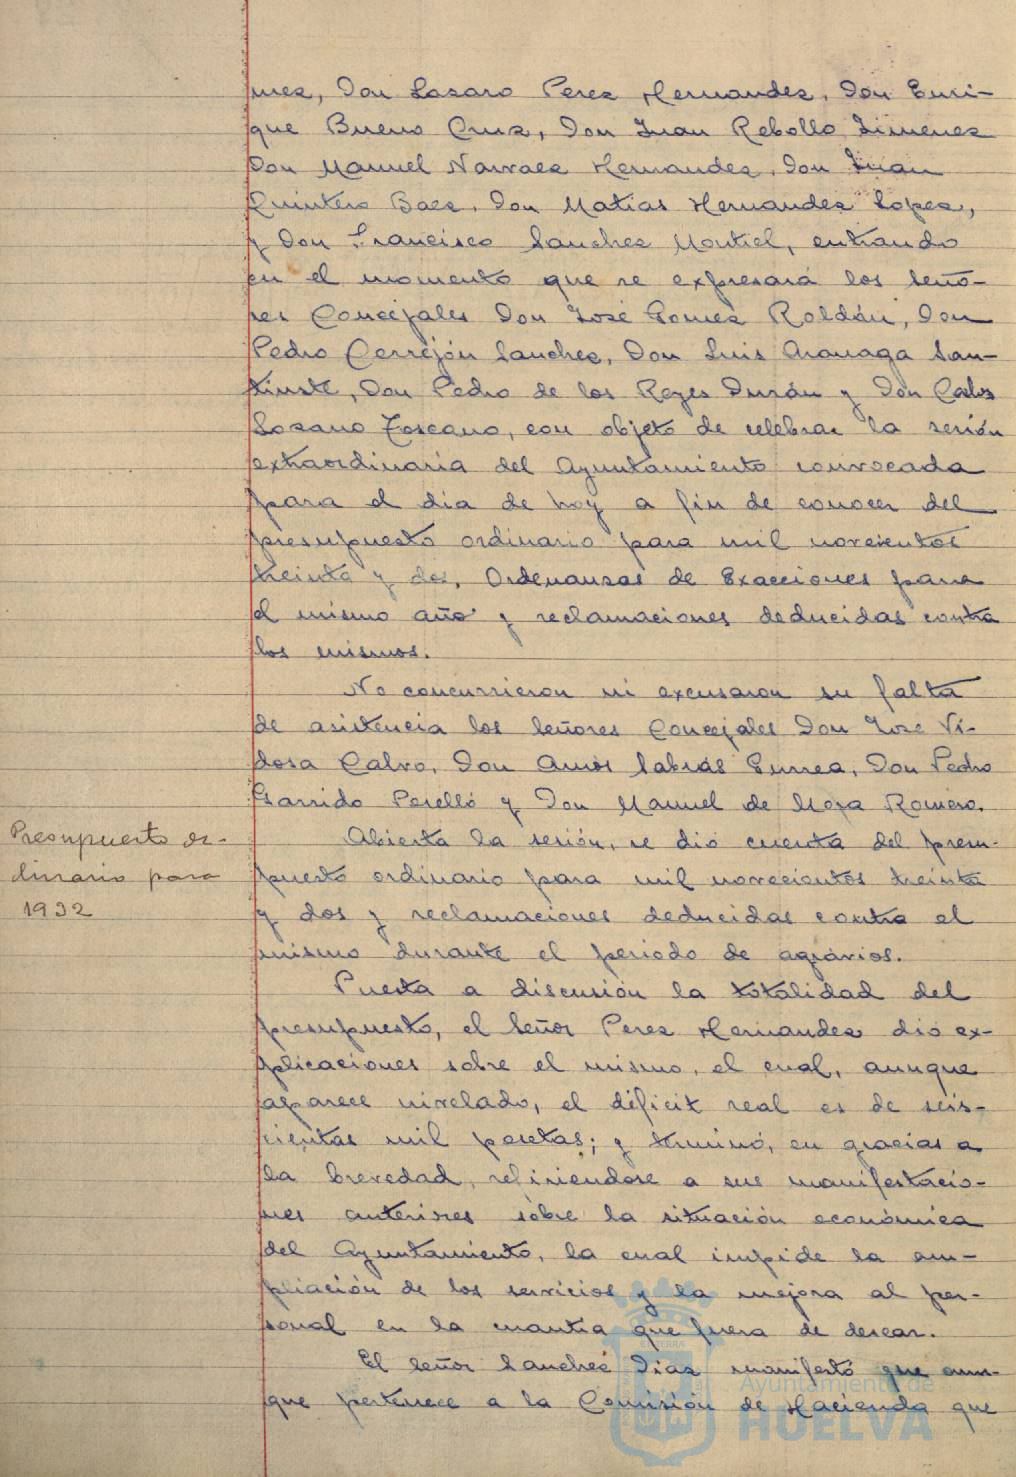 nez, Don Lazaro Perez Hernandez, Don Enri-
que Bueno Cruz, Don Juan Rebollo Jimenez
Don Manuel Narvaez Hernandez, Don Juan
Quintero Baez, Don Matias Hernandez Lopez,
y Don Francisco Sanchez Montiel, entrando
en el momento que se expresará los Seño-
res Concejales Don José Gomez Roldán, Don
Pedro Cerrejón Sanchez, Don Luis Aramaga San-
tiuste, Don Pedro de los Reyes Durán y Don Carlos
Lozano Toscano, con objeto de celebrar la sesión
extraordinaria del Ayuntamiento convocada
para el día de hoy a fin de conocer del
presupuesto ordinario para mil novecientos
treinta y dos, Ordenanzas de Exacciones para
el mismo año y reclamaciones deducidas contra
los mismos.
No concurrieron ni excusaron su falta
de asistencia los Señores Concejales Don Jose Vi-
dosa Calvo, Don Amós Sabrás Gurrea, Don Pedro
Garrido Perelló y Don Manuel de Mora Romero.
Presupuesto or-
dinario para
1932
Abierta la sesión, se dió cuenta del presu-
puesto ordinario para mil novecientos treinta
y dos y reclamaciones deducidas contra el
mismo durante el periodo de agravios.
Puesta a discusión la totalidad del
presupuesto, el Señor Perez Hernandez dió ex-
plicaciones sobre el mismo, el cual, aunque
aparece nivelado, el déficit real es de seis-
cientas mil pesetas; y terminó, en gracias a
la brevedad, refiriendose a sus manifestacio-
nes anteriores sobre la situación económica
del Ayuntamiento, la cual impide la am-
pliación de los servicios y la mejora al per-
sonal en la cuantia que fuera de desear.
El Señor Sanchez Diaz manifestó que aun-
que pertenece a la Comisión de Hacienda que
Ayuntamiento de
HUELVA